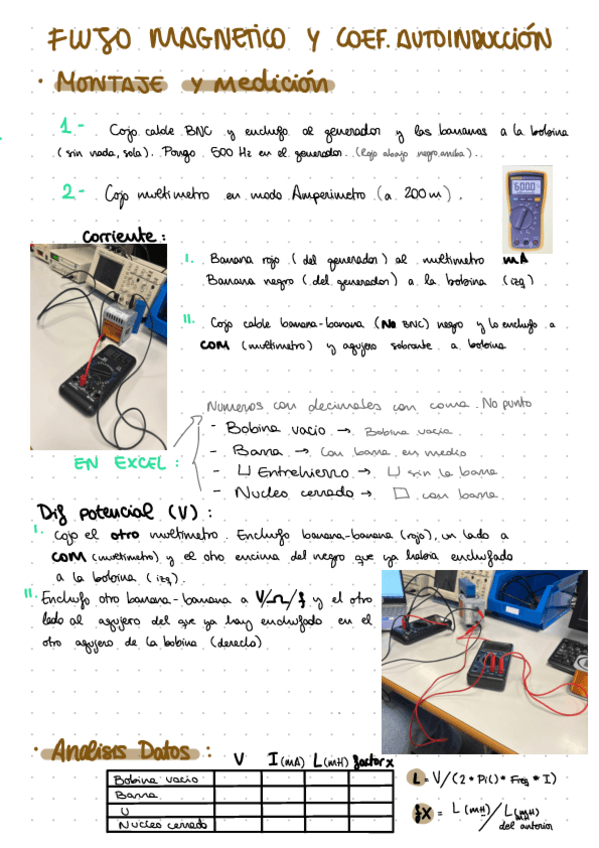 FLUJO MAGNETICO Y COEF. AUTOINDUCCIÓN
· MONTAJE y medición
1- Cojo cable BNC y enchufo al generador y las bananas a la bobina
(sin nada, sola). Pongo 500 Hz en el generador. (Rojo abajo negro arriba).
2- Cojo multimetro en modo Amperimetro (a 200m).
600.0
corriente:
I. Banana rojo (del generador) al multimetro mA
Banana negro (del generador) a la bobina (izq)
II. Cojo cable banana-banana (NO BNC) negro y lo enchufo a
COM (multimetro) y agujero sobrante a bobina
Numeros con decimales con coma. No punto
EN EXCEL:
- Bobina vacio → Bobina vacia
- Barra → Con barra en medio
- U Entrehierro → U sin la barra
- Nucleo cerrado → □ con barra
Dif potencial (V):
I. Cojo el otro multimetro. Enchufo banana-banana (rojo), un lado a
COM (multimetro) y el otro encima del negro que ya habia enchufado
a la bobina (izq).
II. Enchufo otro banana-banana a V/Ω/f y el otro
lado al agujero del que ya hay enchufado en el
otro agujero de la bobina (derecho)
· Analisis Datos:
V I(mA) L(mH) factor x
Bobina vacio
Barra
U
Nucleo cerrado
L = V/(2*Pi()*Freq*I)
fX = L(mH)/L(mH)
del anterior